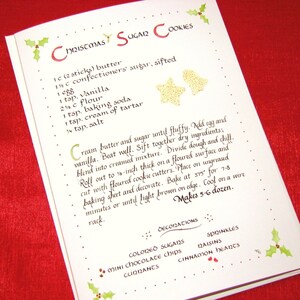 Christmas Sugar Cookies
1 c (2 sticks) butter
1½ c confectioners' sugar, sifted
1 egg
1 tsp. vanilla
2½ c flour
1 tsp. baking soda
1 tsp. cream of tartar
¼ tsp. salt
Cream butter and sugar until fluffy. Add egg and
vanilla. Beat well. Sift together dry ingredients;
blend into creamed mixture. Divide dough and chill.
Roll out to ¼ inch thick on a floured surface and
cut with floured cookie cutters. Place on ungreased
baking sheet and decorate. Bake at 375° for 7-8
minutes or until light brown on edge. Cool on wire
rack.
Makes 5-6 dozen.
Decorations
colored sugars
sprinkles
mini chocolate chips
raisins
currants
cinnamon hearts